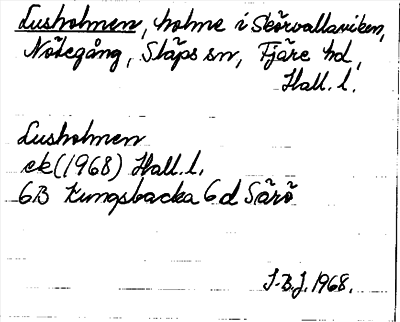 Lusholmen, holme i Skörvallaviken,
Nötegång, Släps sn, Fjäre hd,
Hall. l.
Lusholmen
ek (1968) Hall. l.
6B Kungsbacka 6d Särö
J.B.J. 1968.